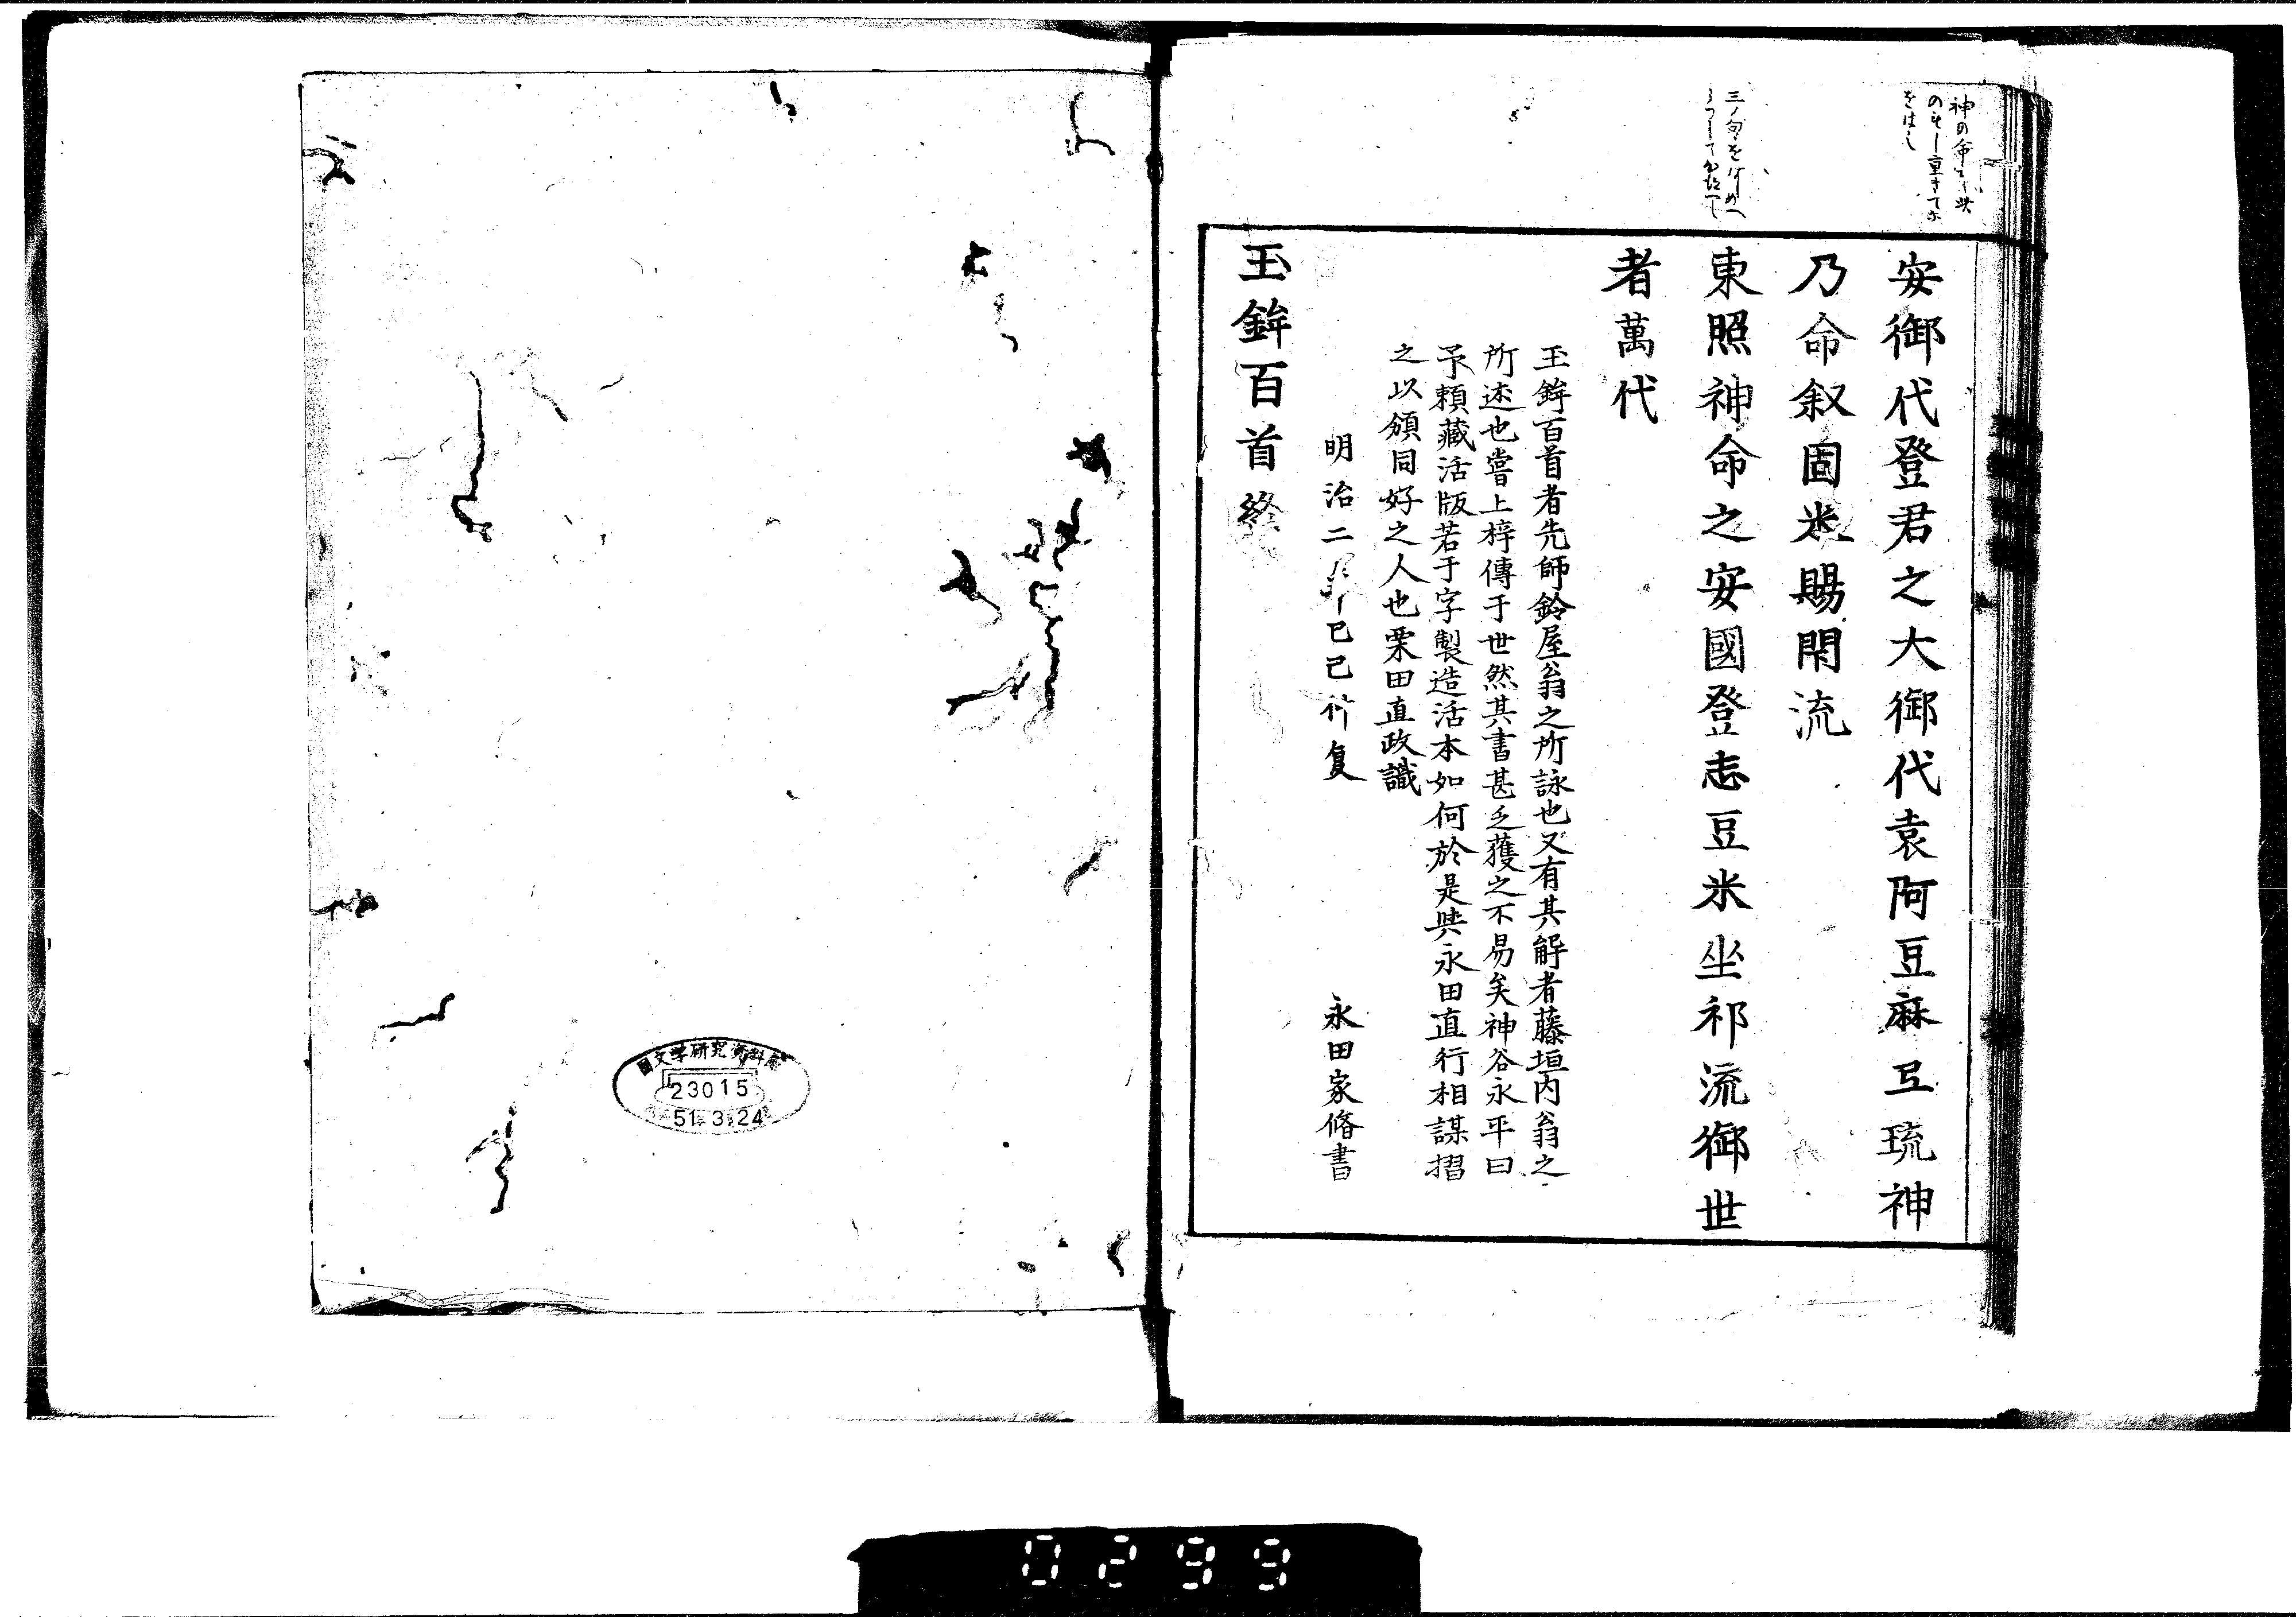 安御代登君之大御代袁阿豆麻弖琉神
乃命叙固米賜閇流
東照神命之安國登志豆米坐祁流御世
者萬代
玉鉾百首者先師鈴屋翁之所詠也又有其解者藤垣内翁之
所述也嘗上梓傳于世然其書甚乏獲之不易矣神谷永平曰
予頼藏活版若于字製造活本如何於是與永田直行相謀摺
之以頒同好之人也栗田直政識
明治二 己巳 夏
永田家脩書
玉鉾百首終
國文学研究資料館
23015
51.3.24
0299